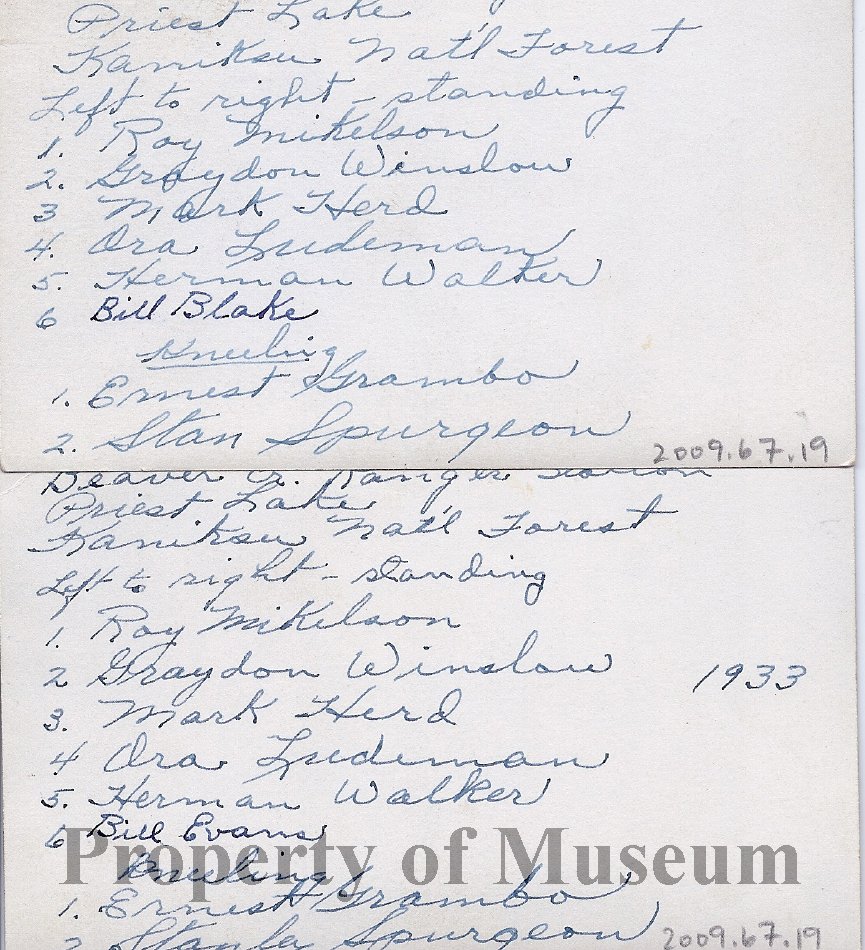 Priest Lake
Kaniksu Nat'l Forest
Left to right - standing
1. Roy Mikelson
2. Graydon Winslow
3 Mark Herd
4. Ora Ludeman
5. Herman Walker
6 Bill Blake
Kneeling
1. Ernest Grambo
2. Stan Spurgeon
2009.67.19
Beaver Cr. Ranger Station
Priest Lake
Kaniksu Nat'l Forest
Left to right - standing
1. Roy Mikelson
2 Graydon Winslow
1933
3. Mark Herd
4 Ora Ludeman
5. Herman Walker
6 Bill Evans
Property of Museum
Kneeling
1. Ernest Grambo
2 Spurgeon
2009.67.19